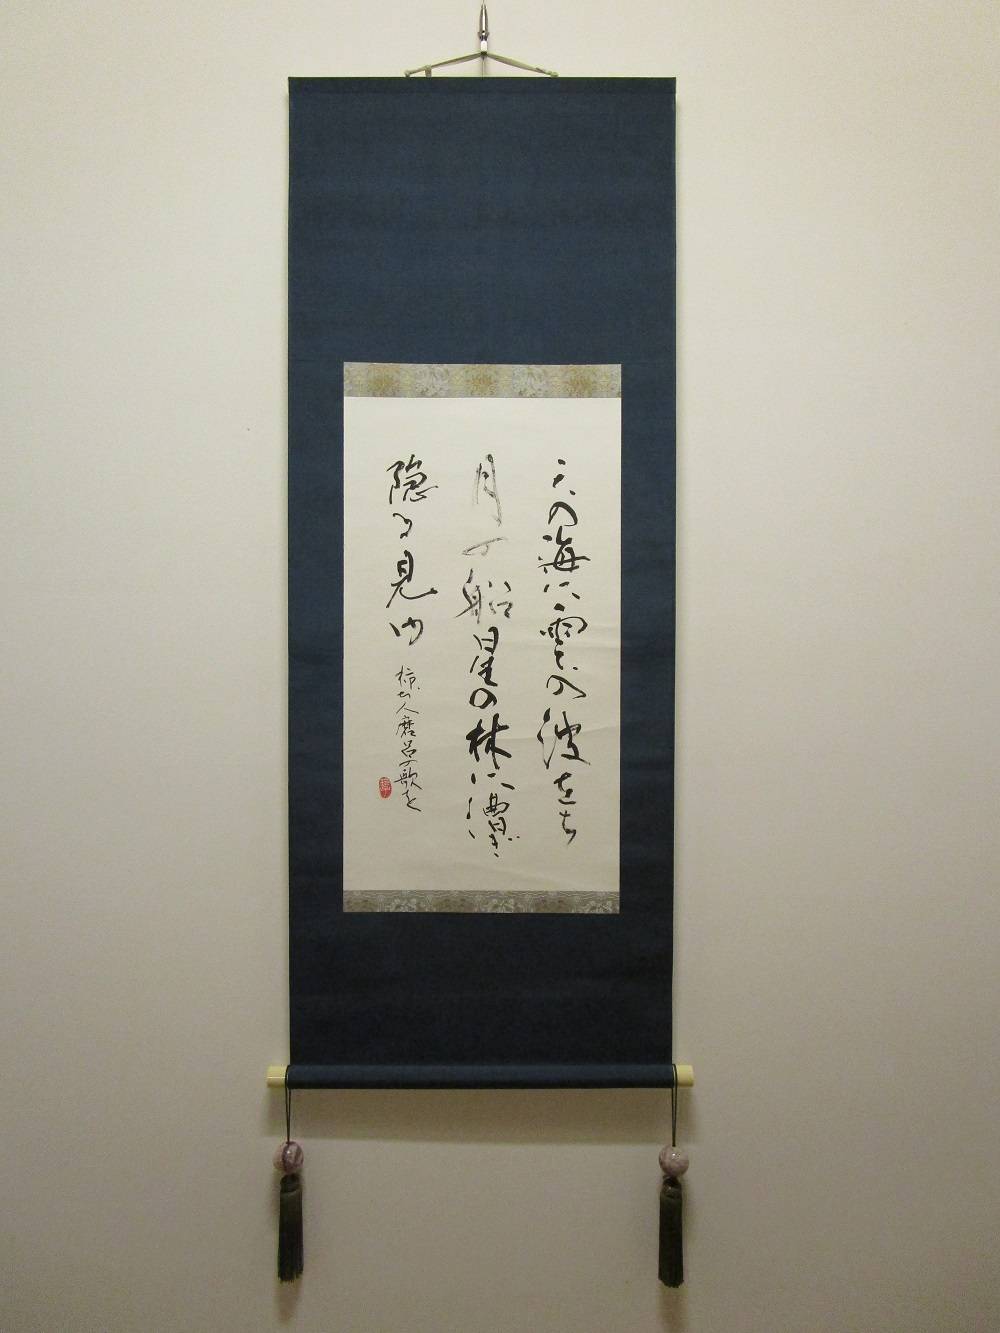 天の海に雲の波たち
月の船星の林に漕ぎ
隠る見ゆ
柿本人麿呂の歌を